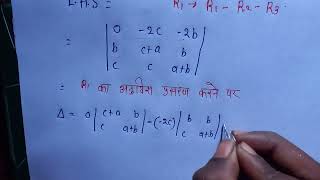 L.H.S = R₁ → R₁ - R₂ - R₃.
= | 0 -2c -2b |
| b c+a b |
| c c a+b |
= R₁ का अनुदिश प्रसरण करने पर
Δ = 0 | c+a b | - (-2c) | b b |
| c a+b | | c a+b |